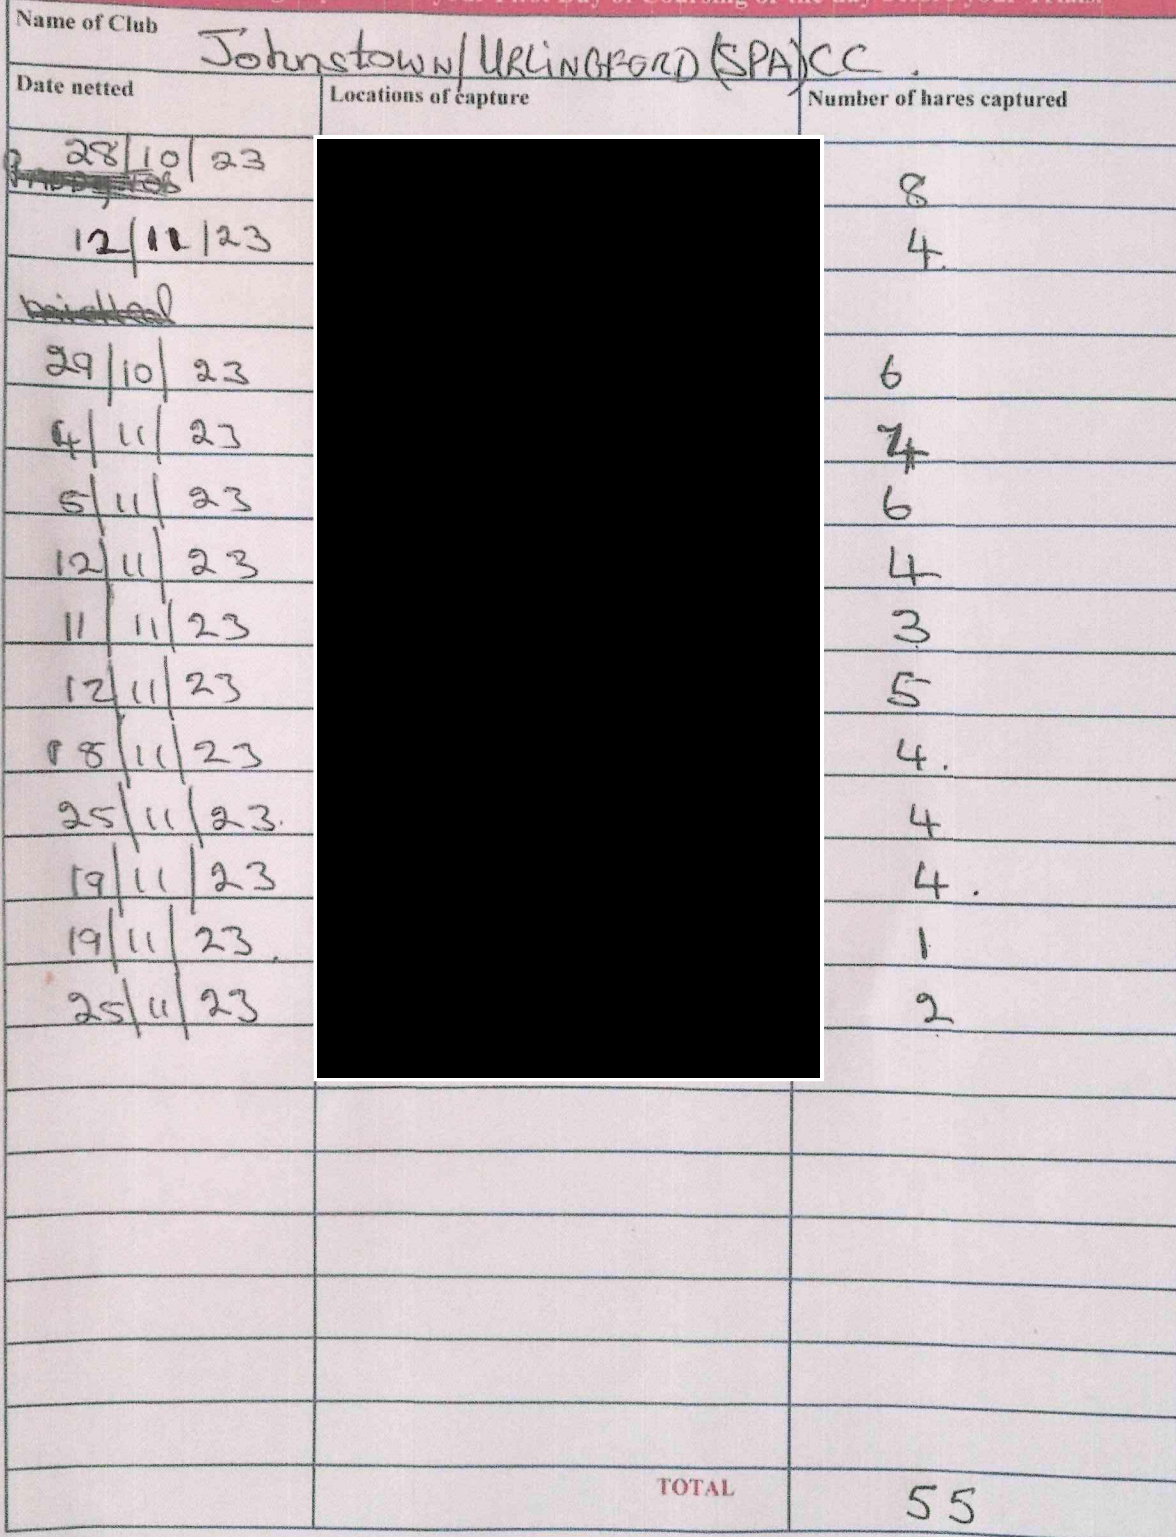 Name of Club Johnstown/URLINGFORD (SPA) CC.
Date netted Locations of capture Number of hares captured
28/10/23 8
12/11/23 4.
29/10/23 6
4/11/23
5/11/23 6
12/11/23 4
11/11/23 3
12/11/23 5
18/11/23 4.
25/11/23. 4
19/11/23 4.
19/11/23. 1
25/11/23 2
TOTAL 55